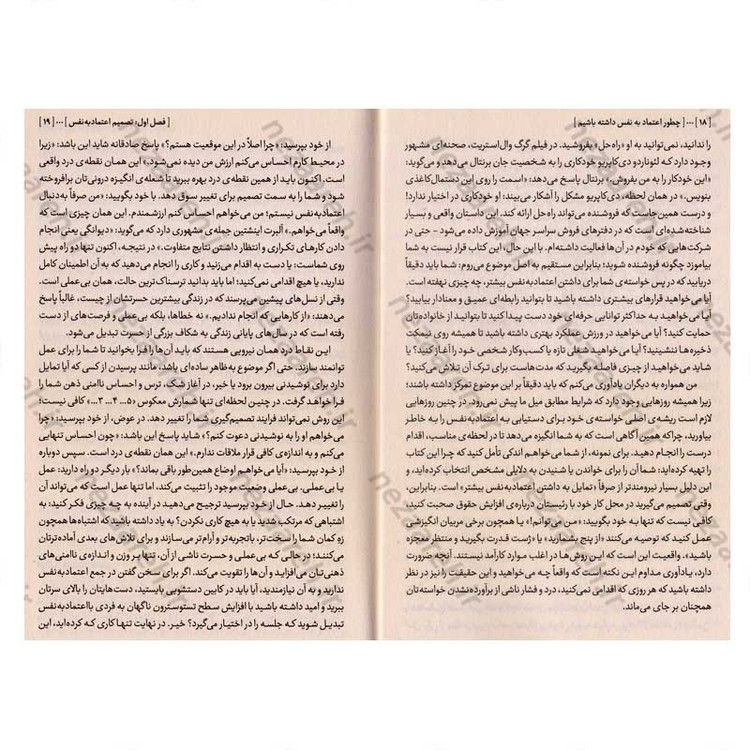 [ ۱۸ ] ••• [ چطور اعتماد به نفس داشته باشیم ]
را ندانید، نمی‌توانید به او «راه‌حل» بفروشید. در فیلم گرگ وال‌استریت، صحنه‌ای مشهور
وجود دارد که لئوناردو دی‌کاپریو خودکاری را به شخصیت جان برنتال می‌دهد و می‌گوید:
«این خودکار را به من بفروش.» برنتال پاسخ می‌دهد: «اسمت را روی این دستمال‌کاغذی
بنویس.» در همان لحظه، دی‌کاپریو مشکل را آشکار می‌بیند: او خودکاری در اختیار ندارد!
و درست همین‌جاست که فروشنده می‌تواند راه‌حل ارائه کند. این داستان واقعی و بسیار
شناخته‌شده‌ای است که در دفترهای فروش سراسر جهان آموزش داده می‌شود – حتی در
شرکت‌هایی که خودم در آن‌ها فعالیت داشته‌ام. با این حال، این کتاب قرار نیست به شما
بیاموزد چگونه فروشنده شوید؛ بنابراین مستقیم به اصل موضوع می‌روم: شما باید دقیقاً
دریابید که در پس خواسته‌ی شما برای داشتن اعتمادبه‌نفس بیشتر، چه چیزی نهفته است.
آیا می‌خواهید قرارهای بیشتری داشته باشید تا بتوانید رابطه‌ای عمیق و معنادار بیابید؟
آیا می‌خواهید به حداکثر توانایی حرفه‌ای خود دست پیدا کنید تا بتوانید از خانواده‌تان
حمایت کنید؟ آیا می‌خواهید در ورزش عملکرد بهتری داشته باشید تا همیشه روی نیمکت
ذخیره‌ها ننشینید؟ آیا می‌خواهید شغلی تازه یا کسب‌وکار شخصی خود را آغاز کنید؟ یا
شاید می‌خواهید از چیزی فاصله بگیرید که مدت‌هاست برای ترک آن تلاش می‌کنید؟
من همواره به دیگران یادآوری می‌کنم که باید دقیقاً بر این موضوع تمرکز داشته باشند؛
زیرا همیشه روزهایی وجود دارد که شرایط مطابق میل ما پیش نمی‌رود. در چنین روزهایی
لازم است ریشه‌ی اصلی خواسته‌ی خود برای دستیابی به اعتمادبه‌نفس را به خاطر
بیاورید، چراکه همین آگاهی است که به شما انگیزه می‌دهد تا در لحظه‌ی مناسب، اقدام
درست را انجام دهید. برای نمونه، از شما می‌خواهم اندکی تأمل کنید که چرا این کتاب
را تهیه کرده‌اید؛ شما آن را برای خواندن یا شنیدن به دلایلی مشخص انتخاب کرده‌اید، و
این دلیل بسیار نیرومندتر از صرفاً «تمایل به داشتن اعتمادبه‌نفس بیشتر» است. بنابراین،
وقتی تصمیم می‌گیرید در محل کار خود با رئیستان درباره‌ی افزایش حقوق صحبت کنید،
کافی نیست که تنها به خود بگویید: «من می‌توانم!» یا همچون برخی مربیان انگیزشی
عمل کنید که توصیه می‌کنند «از پنج بشمارید» یا «ژست قدرت بگیرید و منتظر معجزه
باشید». واقعیت این است که این روش‌ها در اغلب موارد کارآمد نیستند. آنچه ضرورت
دارد، یادآوری مداوم این نکته است که واقعاً چه می‌خواهید و این حقیقت را نیز در نظر
داشته باشید که هر روزی که اقدامی نمی‌کنید، درد و فشار ناشی از برآورده‌نشدن خواسته‌تان
همچنان بر جای می‌ماند.
[ فصل اول: تصمیم اعتمادبه‌نفس ] ••• [ ۱۹ ]
از خود بپرسید: «چرا اصلاً در این موقعیت هستم؟» پاسخ صادقانه شاید این باشد: «زیرا
در محیط کارم احساس می‌کنم ارزش من دیده نمی‌شود.» این همان نقطه‌ی درد واقعی
است. اکنون باید از همین نقطه‌ی درد بهره ببرید تا شعله‌ی انگیزه درونی‌تان برافروخته
شود و شما را به سمت تصمیم برای تغییر سوق دهد. با خود بگویید: «من صرفاً به‌دنبال
اعتمادبه‌نفس نیستم؛ من می‌خواهم احساس کنم ارزشمندم. این همان چیزی است که
واقعاً می‌خواهم.» آلبرت اینشتین جمله‌ی مشهوری دارد که می‌گوید: «دیوانگی یعنی انجام
دادن کارهای تکراری و انتظار داشتن نتایج متفاوت.» در نتیجه، اکنون تنها دو راه پیش
روی شماست: یا دست به اقدام می‌زنید و کاری را انجام می‌دهید که به آن اطمینان کامل
ندارید، یا هیچ اقدامی نمی‌کنید. اما باید بدانید ترسناک‌ترین حالت، همان بی‌عملی است.
وقتی از نسل‌های پیشین می‌پرسند که در زندگی بیشترین حسرتشان از چیست، غالباً پاسخ
می‌دهند: «از کارهایی که انجام ندادیم.» نه خطاها، بلکه بی‌عملی و فرصت‌های از دست
رفته است که در سال‌های پایانی زندگی به شکاف بزرگی از حسرت تبدیل می‌شود.
این نقاط درد همان نیرویی هستند که باید آن‌ها را فرا بخوانید تا شما را برای عمل
توانمند سازند. حتی اگر موضوع به‌ظاهر ساده‌ای باشد، مانند پرسیدن از کسی که آیا تمایل
دارد برای نوشیدنی بیرون برود یا خیر، در آغاز شک، ترس و احساس ناامنی ذهن شما را
فرا خواهد گرفت. در چنین لحظه‌ای تنها شمارش معکوس «۵... ۴... ۳...» کافی نیست؛
این روش نمی‌تواند فرایند تصمیم‌گیری شما را تغییر دهد. در عوض، از خود بپرسید: «چرا
می‌خواهم او را به نوشیدنی دعوت کنم؟» شاید پاسخ این باشد: «چون احساس تنهایی
می‌کنم و به اندازه‌ی کافی قرار ملاقات ندارم.» این همان نقطه‌ی درد است. سپس دوباره
از خود بپرسید: «آیا می‌خواهم اوضاع همین‌طور باقی بماند؟» بار دیگر دو راه دارید: عمل
یا بی‌عملی. بی‌عملی وضعیت موجود را تثبیت می‌کند، اما تنها عمل است که می‌تواند آن
را تغییر دهد. حال از خود بپرسید ترجیح می‌دهید در آینده به چه چیزی فکر کنید: به
اشتباهی که مرتکب شدید یا به هیچ کاری نکردن؟ به یاد داشته باشید که اشتباه‌ها همچون
زه کمان شما را سخت‌تر، باتجربه‌تر و آرام‌تر می‌سازند و برای تلاش‌های بعدی آماده‌ترتان
می‌کنند؛ در حالی که بی‌عملی و حسرت ناشی از آن، تنها بر وزن و اندازه‌ی ناامنی‌های
ذهنی‌تان می‌افزاید و آن‌ها را تقویت می‌کند. اگر برای سخن گفتن در جمع اعتمادبه‌نفس
ندارید و به آن نیازمندید، آیا باید در کابین دستشویی بایستید، دست‌هایتان را بالای سرتان
ببرید و امید داشته باشید با افزایش سطح تستوسترون ناگهان به فردی بااعتمادبه‌نفس
تبدیل شوید که جلسه را در اختیار می‌گیرد؟ خیر. در نهایت تنها کاری که کرده‌اید، این